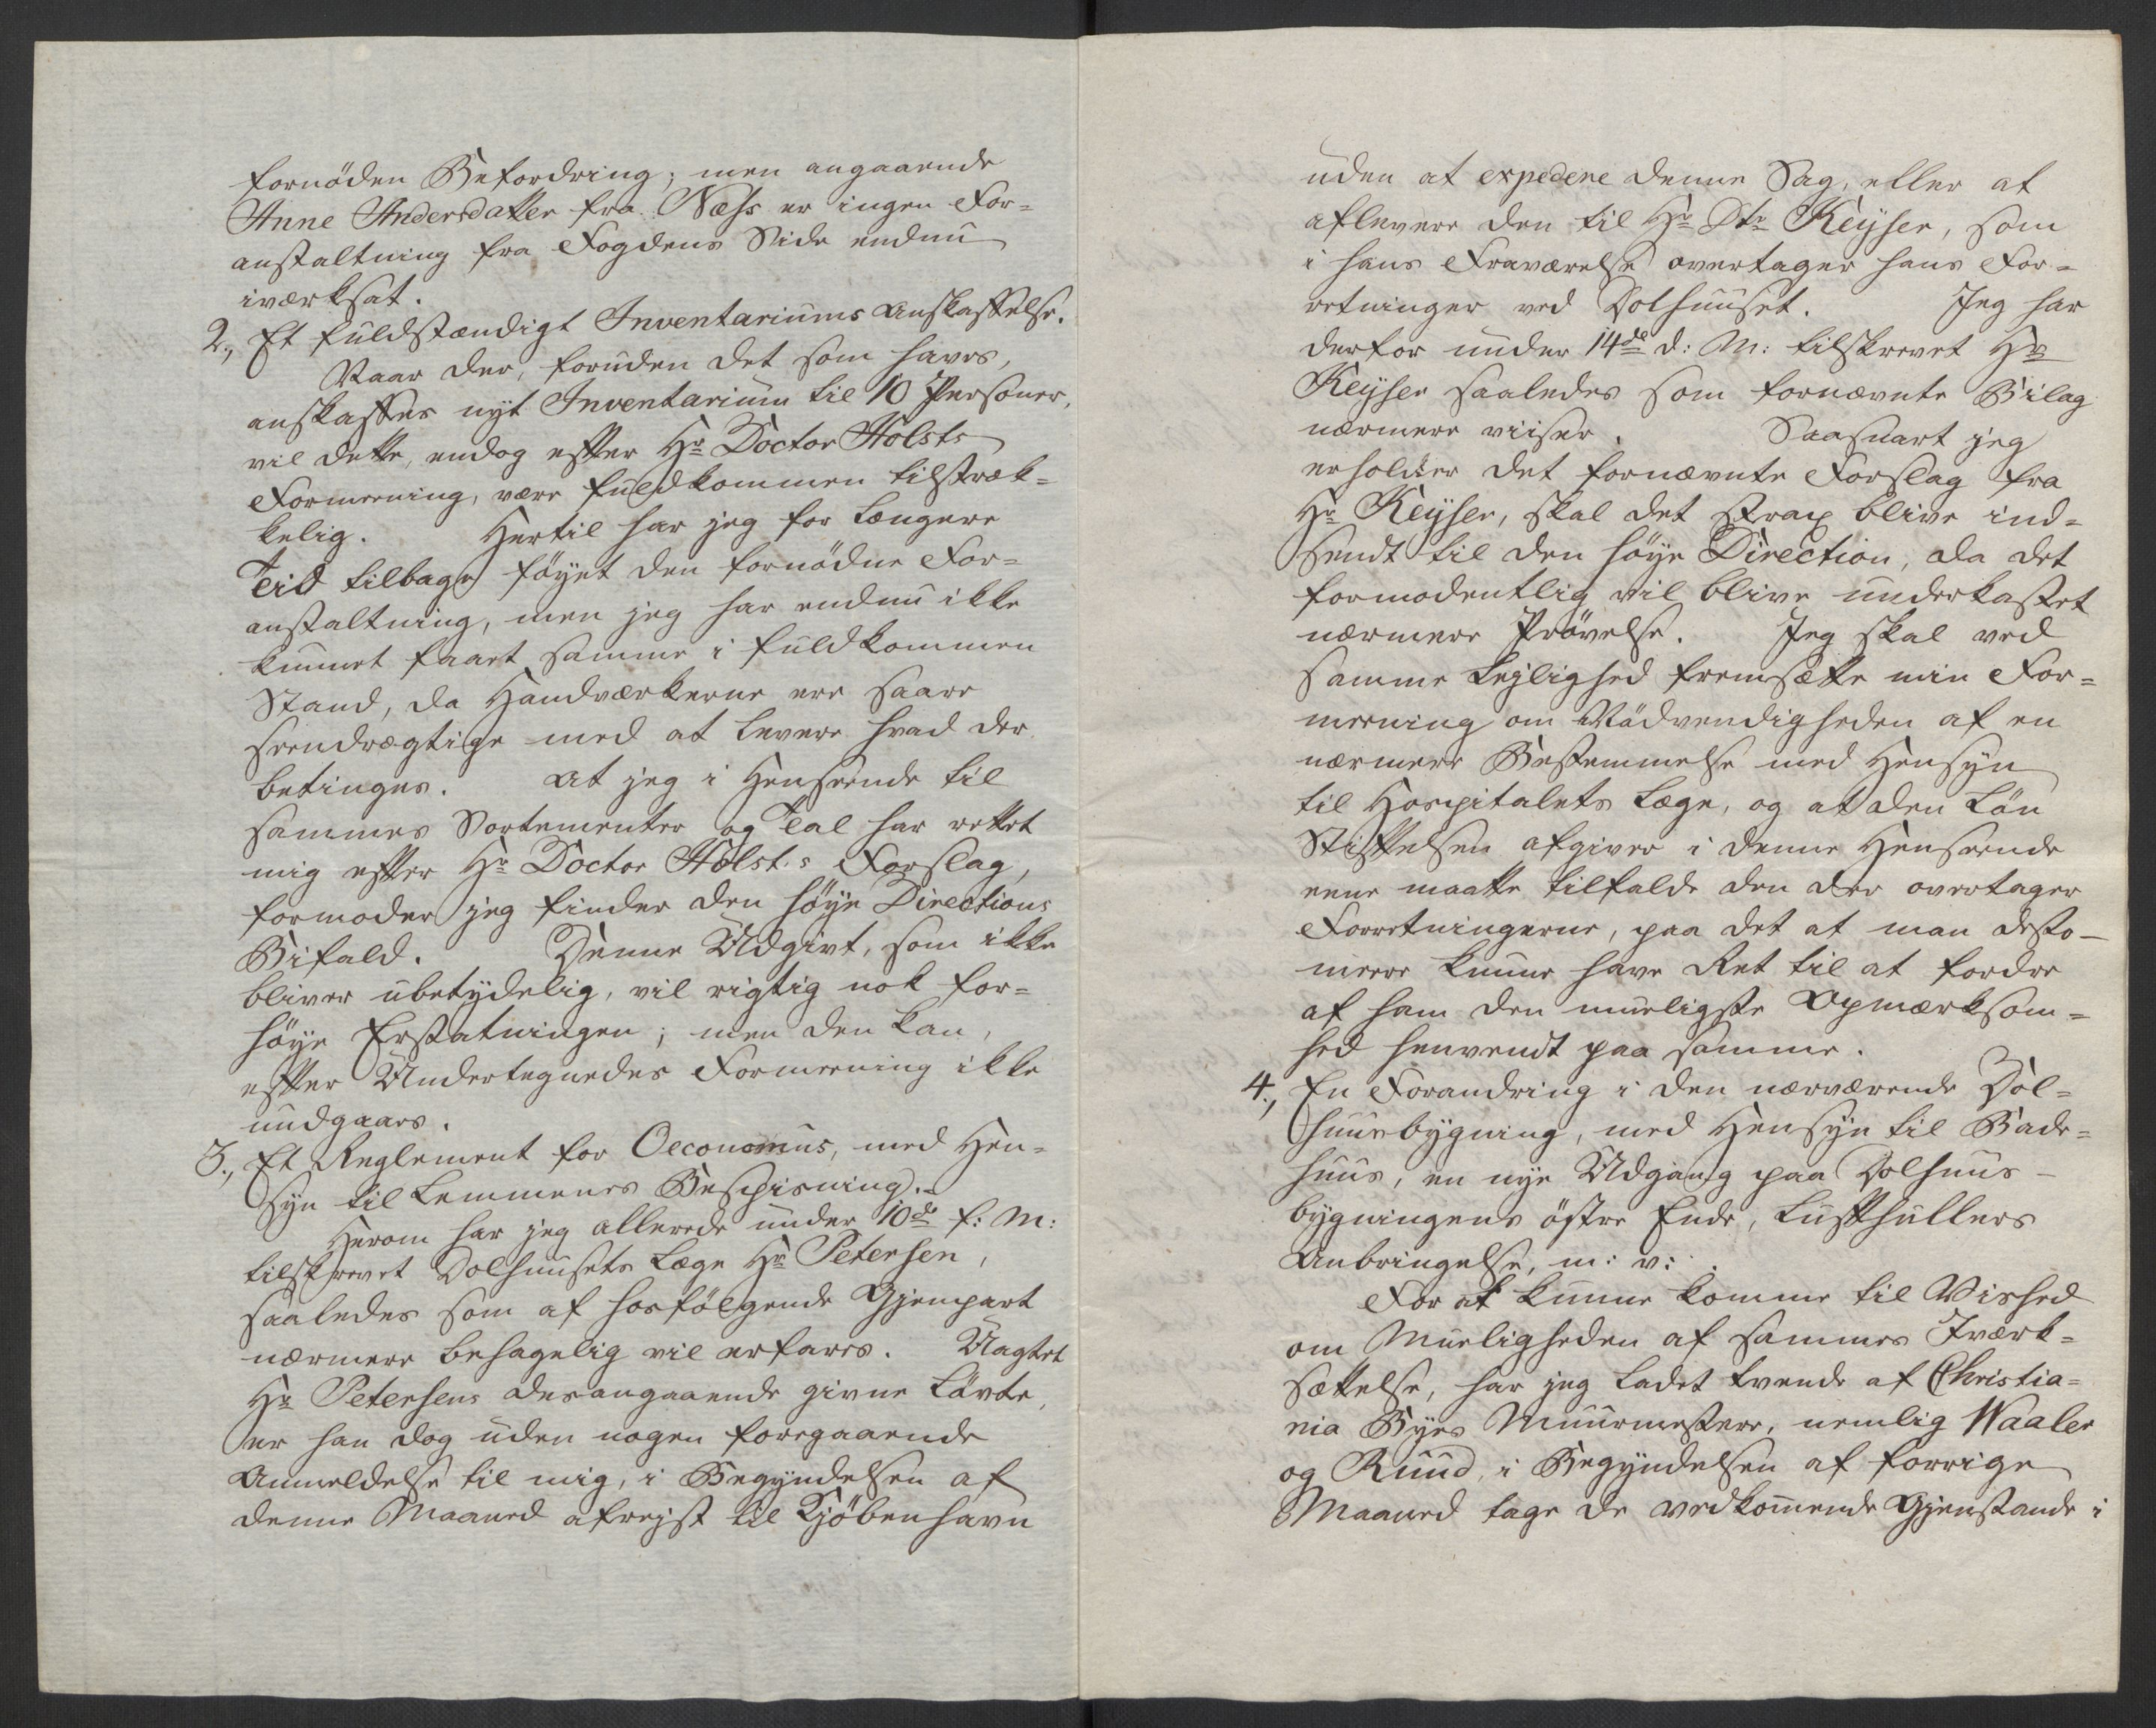 fornöden Befordring; men angaaende
Anne Andersdatter fra Næss er ingen For-
anstaltning fra Fogdens Side endnu
iværksat.
2., Et fuldstændigt Inventariums Anskaffelse.
Naar der, foruden det som haves,
anskaffes nyt Inventarium til 10 Personer,
vil dette, endog efter Hr Doctor Holsts
Formeening, være fuldkommen tilstræk-
kelig. Hertil har jeg for længere
Teid tilbage föyet den fornödne For-
anstaltning, men jeg har endnu ikke
kunnet faaet samme i fuldkommen
Stand, da Haandværkerne ere saare
seendrægtige med at levere hvad der
betinges. At jeg i Henseende til
sammes Sortementer og Tal har rettet
mig efter Hr Doctor Holst's Forslag,
formoder jeg finder den höye Directions
Bifald. Denne Udgivt, som ikke
bliver ubetydelig, vil rigtig nok for-
höye Erstatningen; men den kan,
efter Undertegnedes Formeening ikke
undgaaes.
3., Et Reglement for Oeconomus, med Hen-
syn til Lemmenes Bespisning.
Herom har jeg allerede under 10de f: M:
tilskrevet Dolhuusets Læge Hr Petersen,
saaledes som af hosfölgende Gjenpart
nærmere behagelig vil erfares. Uagtet
Hr Petersens desangaaende givne Lövte,
er han dog uden nogen foregaaende
Anmeldelse til mig, i Begyndelsen af
denne Maaned afrejst til Kjöbenhavn
uden at expedere denne Sag, eller at
aflevere den til Hr Dtr Keyser, som
i hans Fraværelse overtager hans For-
retninger ved Dolhuuset. Jeg har
derfor under 14de d: M: tilskrevet Hr
Keyser saaledes som fornævnte Bilag
nærmere viiser. Saasnart jeg
erholder det fornævnte Forslag fra
Hr Keyser, skal det strax blive ind-
sendt til den höye Direction, da det
formodentlig vil blive underkastet
nærmere Prövelse. Jeg skal ved
samme Lejlighed fremsætte min For-
meening om Nödvendigheden af en
nærmere Bestemmelse med Hensyn
til Hospitalets Læge, og at den Lön
Stiftelsen afgiver i denne Henseende
eene maatte tilfalde den der overtager
Forretningerne, paa det at man desto-
meere kunne have Ret til at fordre
af ham den mueligste Opmærksom-
hed henvendt paa samme.
4., En Forandring i den nærværende Dol-
huusbygning, med Hensyn til Bade-
huus, en nye Udgang paa Dolhuus-
bygningens östre Ende, Lufthullers
Anbringelse, m: v:
For at kunne komme til Vished
om Mueligheden af sammes Iværk-
sættelse, har jeg ladet tvende af Christia-
nia Byes Muurmestere, nemlig Waaler
og Ruud, i Begyndelsen af forrige
Maaned tage de vedkommende Gjenstande i